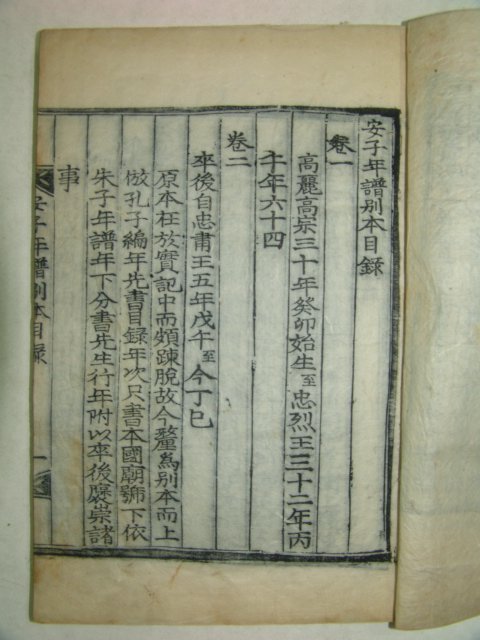 安子年譜別本目録
卷一
高麗高宗三十年癸卯始生至忠烈王三十二年丙
午年六十四
卷二
卒後自忠肅王五年戊午至今丁巳
原本在於實記中而頗踈脫故今釐爲別本而上
倣孔子編年先書目録年次只書本國廟號下依
朱子年譜年下分書先生行年附以卒後褒崇諸
事
安子年譜別本目録
一